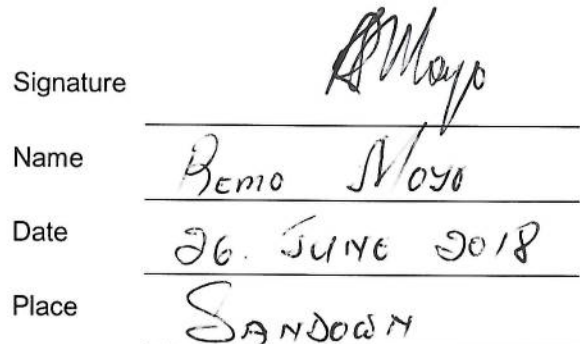 Signature Moyo
Name Remo Moyo
Date 26. JUNE 2018
Place SANDOWN